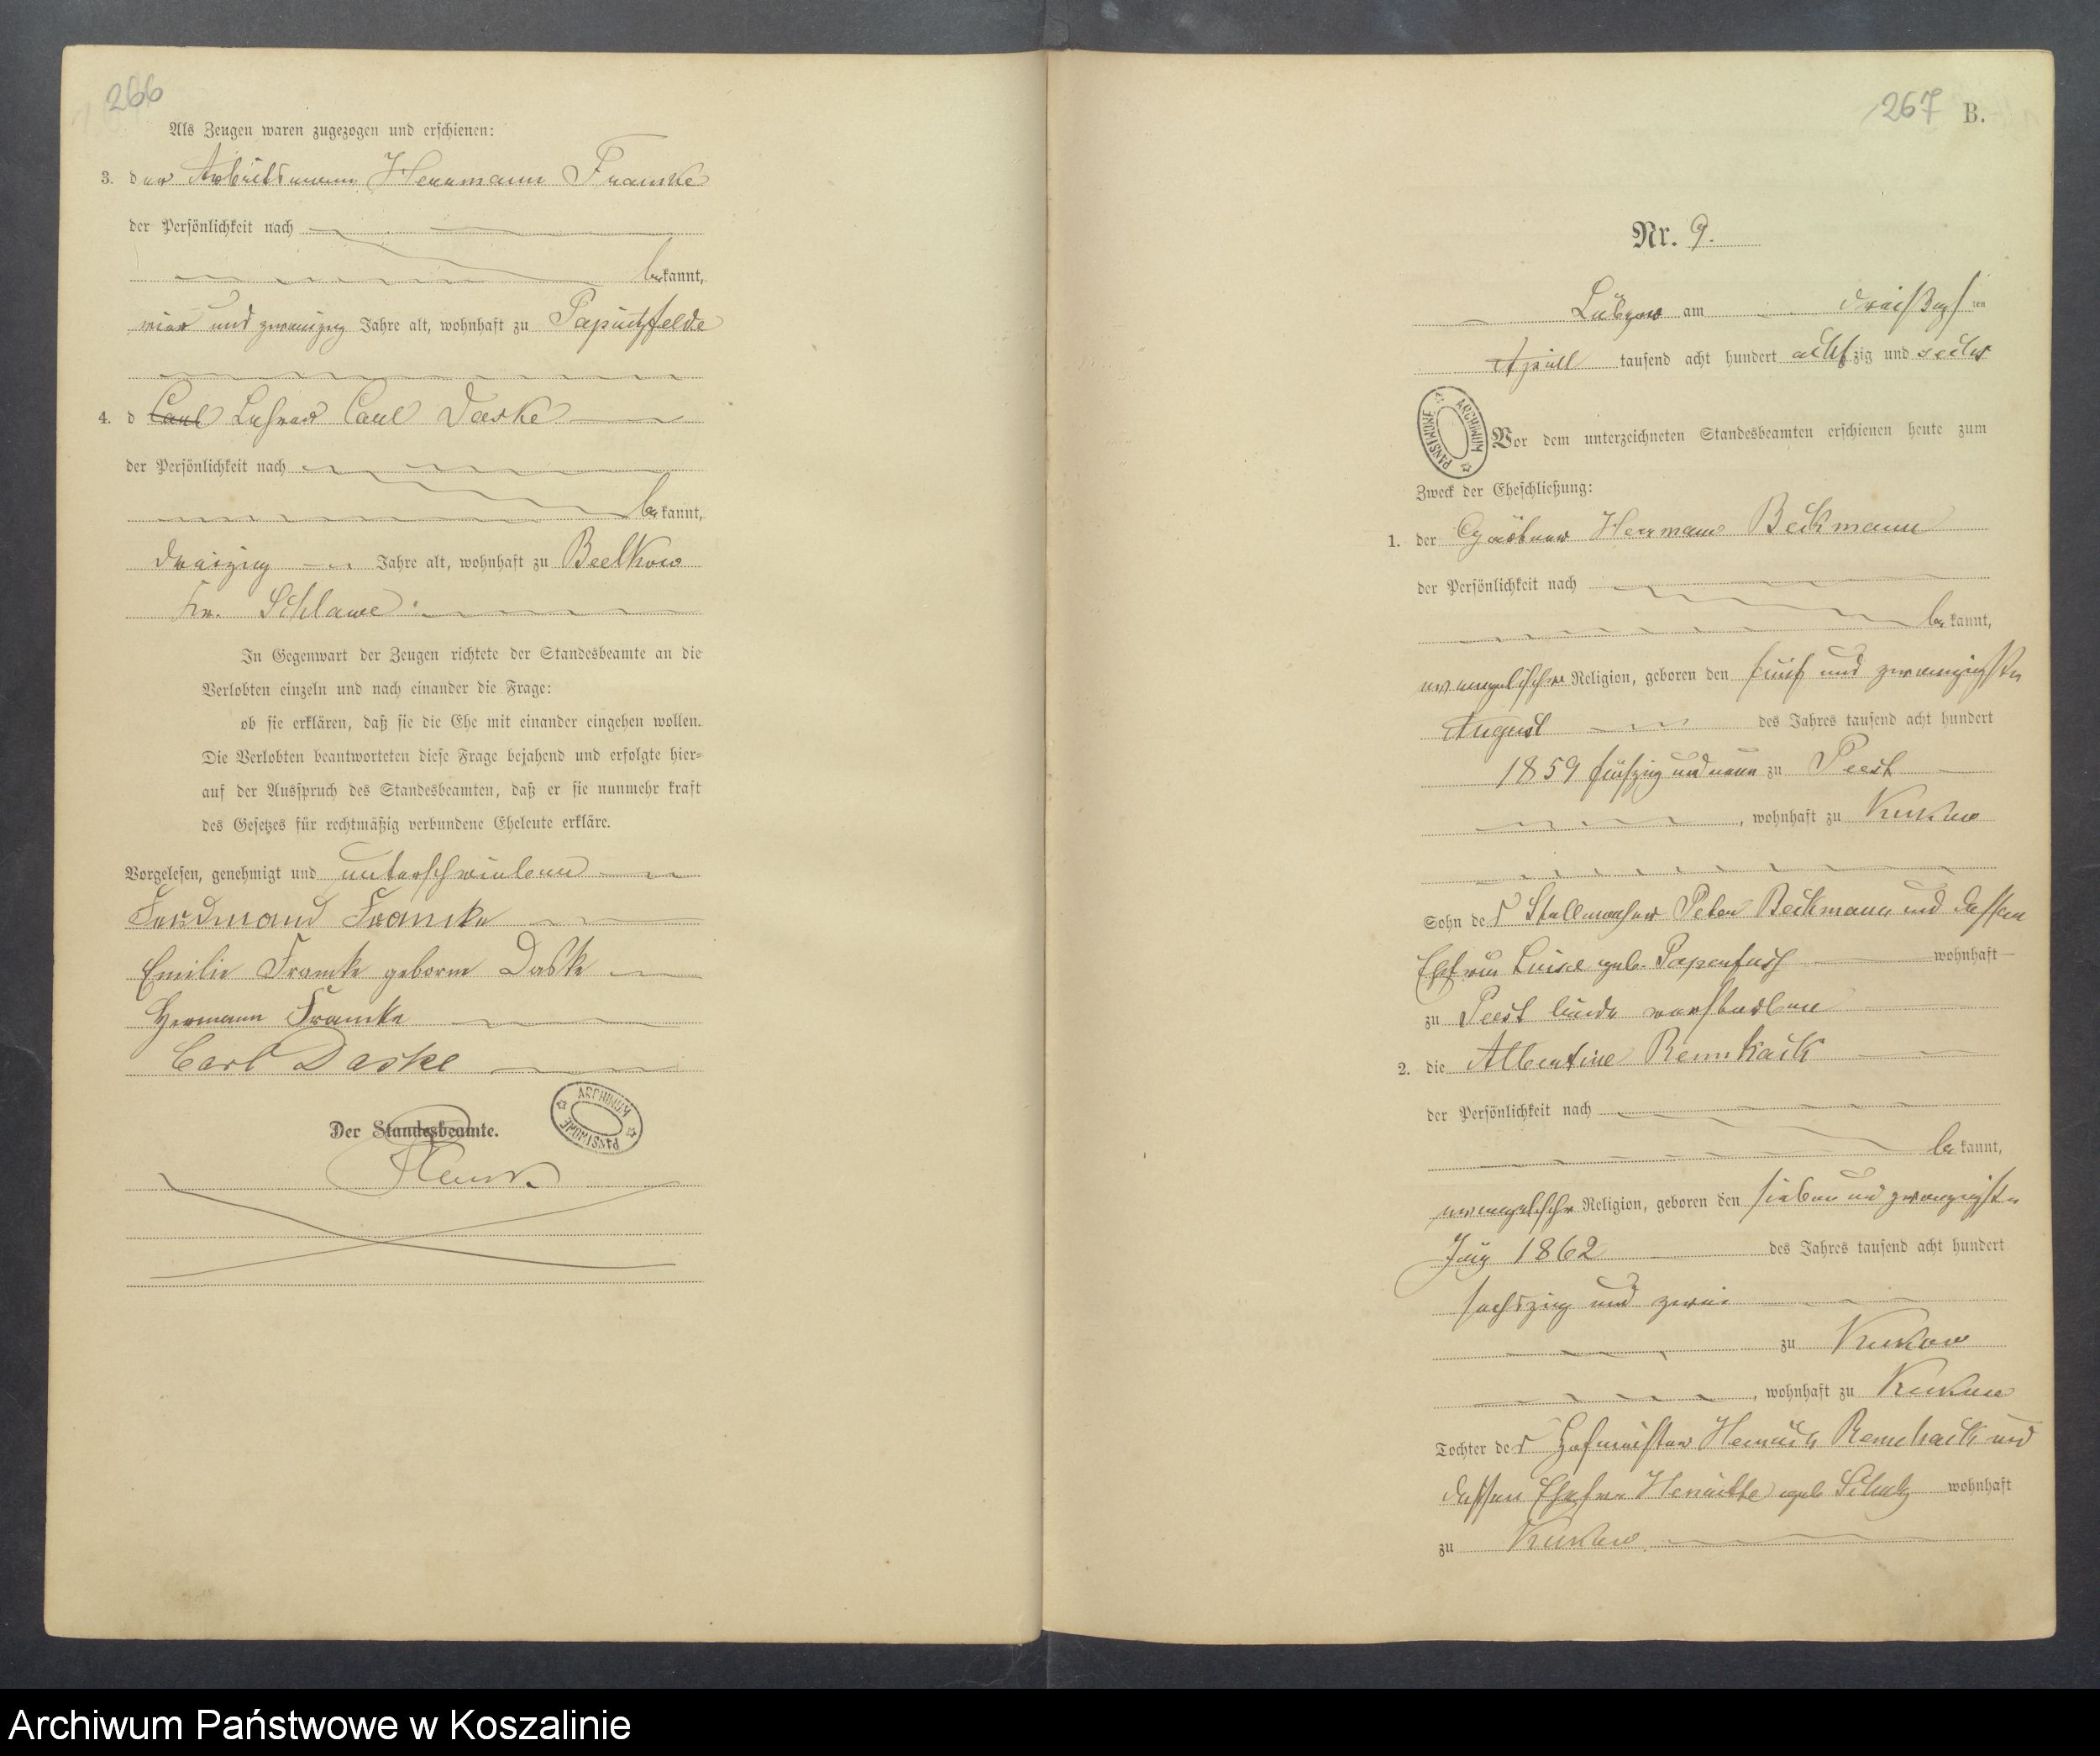 266
Als Zeugen waren zugezogen und erschienen:
3. der Arbeitsmann Herrmann Framke
der Persönlichkeit nach
bekannt,
vier und zwanzig Jahre alt, wohnhaft zu Papritzfelde
4. d Carl Lehrer Carl Daske
der Persönlichkeit nach
bekannt,
dreizig Jahre alt, wohnhaft zu Beelkow
Kr. Schlawe
In Gegenwart der Zeugen richtete der Standesbeamte an die
Verlobten einzeln und nach einander die Frage:
ob sie erklären, daß sie die Ehe mit einander eingehen wollen.
Die Verlobten beantworteten diese Frage bejahend und erfolgte hier-
auf der Ausspruch des Standesbeamten, daß er sie nunmehr kraft
des Gesetzes für rechtmäßig verbundene Eheleute erkläre.
Vorgelesen, genehmigt und unterschrieben
Ferdinand Framke
Emilie Framke geborne Daske
Hermann Framke
Carl Daske
Der Standesbeamte.
ARCHIWUM PAŃSTWOWE
267 B.
Nr. 9.
Lübzow am dreißigsten
April tausend acht hundert achtzig und sechs
ARCHIWUM PAŃSTWOWE
Vor dem unterzeichneten Standesbeamten erschienen heute zum
Zweck der Eheschließung:
1. der Herrmann Beckmann
der Persönlichkeit nach
bekannt,
evangelischer Religion, geboren den fünf und zwanzigsten
August des Jahres tausend acht hundert
1859 fünfzig und neun zu Peest
, wohnhaft zu Kukow
Sohn des Stellmacher Peter Beckmann und dessen
Ehefrau Luise geb. Papenfuß wohnhaft
zu Peest beide verstorben
2. die Albertine Rennhack
der Persönlichkeit nach
bekannt,
evangelischer Religion, geboren den sieben und zwanzigsten
1862 des Jahres tausend acht hundert
sechszig und zwei
zu Kukow
, wohnhaft zu Kukow
Tochter des Hofmeister Heinrich Rennhack und
dessen Ehefrau Henriette geb Schulz wohnhaft
zu Kukow
Archiwum Państwowe w Koszalinie